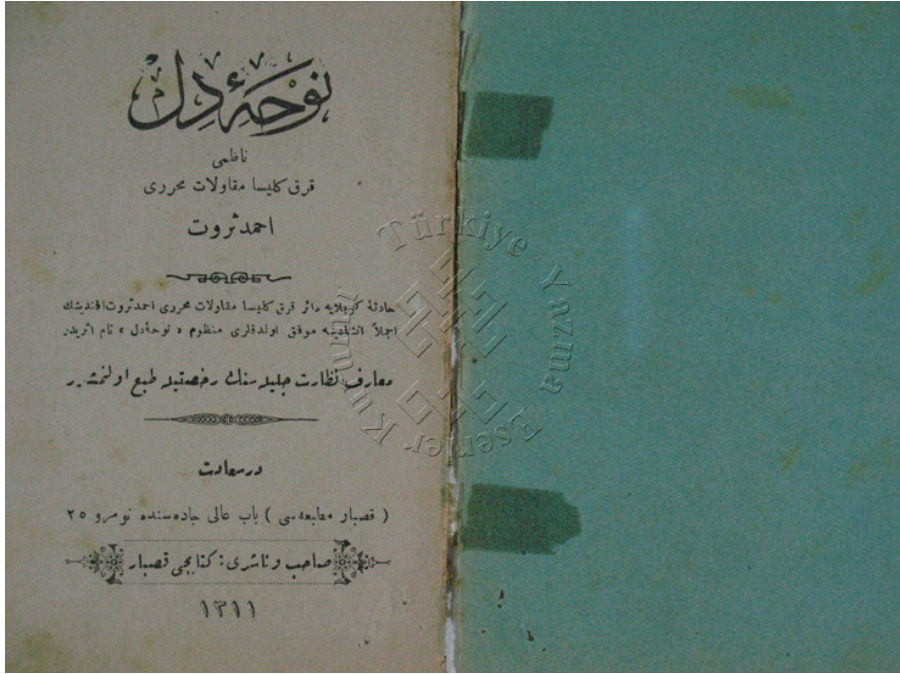 نوحۀ دل
ناظمی
قرق کلیسا مقاولات محرری
احمد ثروت
حادثۀ کربلایه دائر قرق کلیسا مقاولات محرری احمد ثروت افندینك
اجملاً انشادینه موفق اولدقلری منظوم « نوحۀدل » نام اثریدر
معارف نظارت جلیله سنك رخصتیله طبع اولنمشدر
در سعادت
( قصبار مطبعه سی ) باب عالی جاده سنده نومرو ٢٥
صاحب و ناشری : کتابجی قصبار
١٣١١
Türkiye Yazma Eserler Kurumu